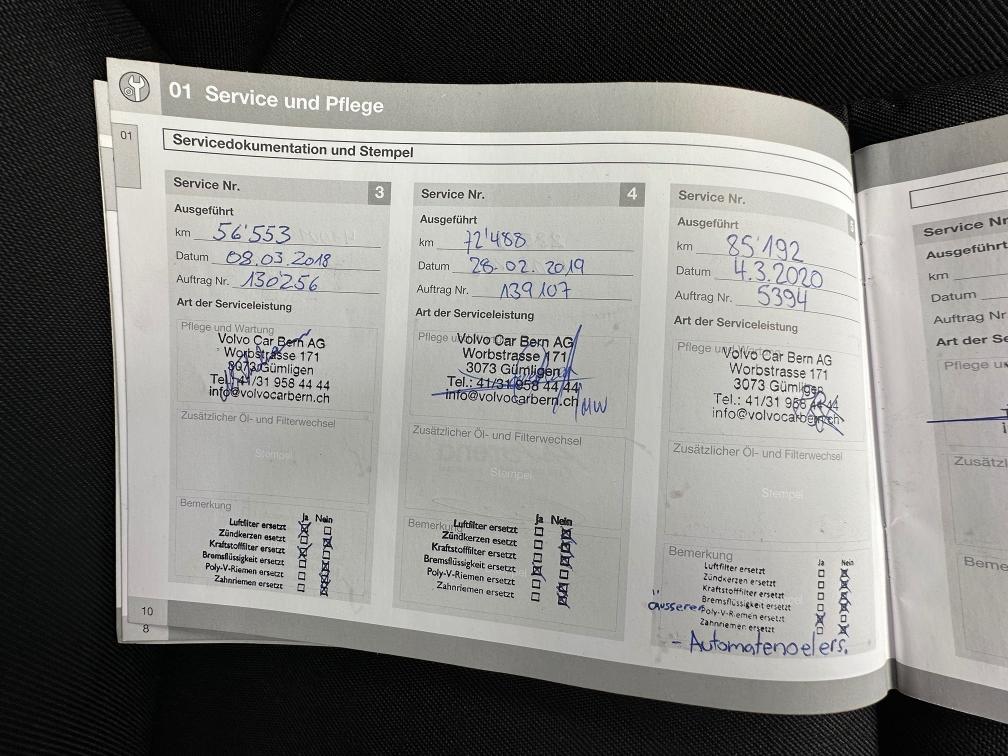 01 Service und Pflege
01
Servicedokumentation und Stempel
Service Nr. 3
Ausgeführt
km 56'553
Datum 08.03.2018
Auftrag Nr. 130'256
Art der Serviceleistung
Pflege und Wartung
Volvo Car Bern AG
Worbstrasse 171
3073 Gümligen
Tel.: 41/31 958 44 44
info@volvocarbern.ch
Zusätzlicher Öl- und Filterwechsel
Stempel
Bemerkung
Ja Nein
Luftfilter ersetzt
Zündkerzen esetzt
Kraftstoffilter ersetzt
Bremsflüssigkeit ersetzt
Poly-V-Riemen ersetzt
Zahnriemen ersetzt
Service Nr. 4
Ausgeführt
km 72'488
Datum 28.02.2019
Auftrag Nr. 139107
Art der Serviceleistung
Pflege und
Volvo Car Bern AG
Worbstrasse 171
3073 Gümligen
Tel.: 41/31 958 44 44
info@volvocarbern.ch MW
Zusätzlicher Öl- und Filterwechsel
Stempel
Bemerkung
Ja Nein
Luftfilter ersetzt
Zündkerzen ersetzt
Kraftstoffilter ersetzt
Bremsflüssigkeit ersetzt
Poly-V-Riemen ersetzt
Zahnriemen ersetzt
Service Nr. 5
Ausgeführt
km 85'192
Datum 4.3.2020
Auftrag Nr. 5394
Art der Serviceleistung
Pflege und Wartung
Volvo Car Bern AG
Worbstrasse 171
3073 Gümligen
Tel.: 41/31 958 44 44
info@volvocarbern.ch
Zusätzlicher Öl- und Filterwechsel
Stempel
Bemerkung
Ja Nein
Luftfilter ersetzt
Zündkerzen ersetzt
Kraftstoffilter ersetzt
Bremsflüssigkeit ersetzt
äusserer Poly-V-Riemen ersetzt
Zahnriemen ersetzt
- Automatenoelers.
10
8
Service Nr
Ausgeführt
km
Datum
Auftrag Nr.
Art der Se
Pflege u
Zusätzl
Beme